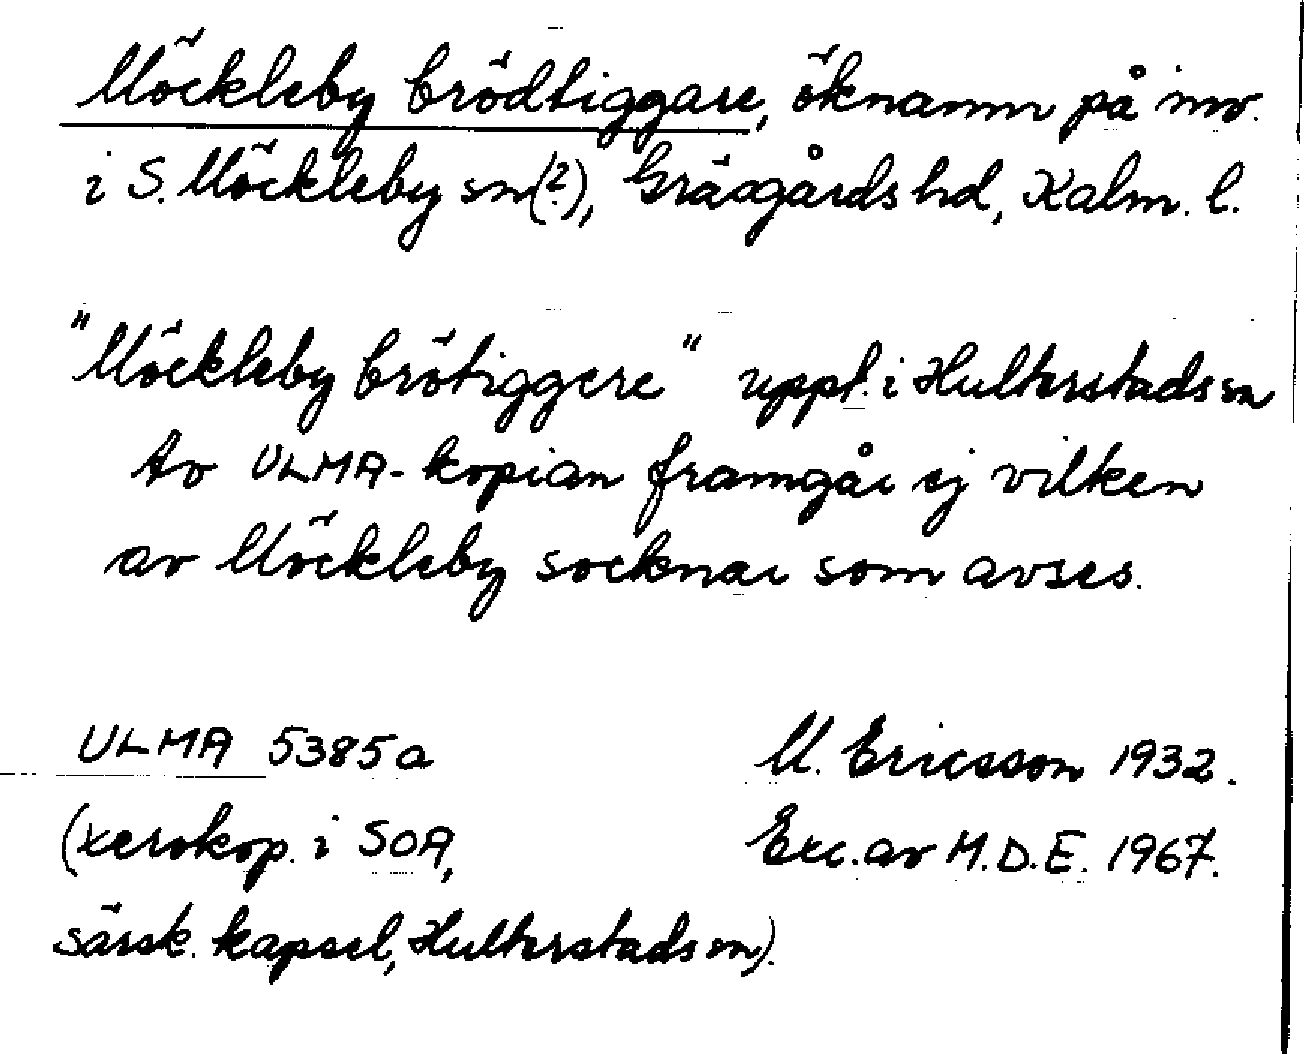 Möckleby brödtiggare, öknamn på inv.
i S. Möckleby sn(?), Gräsgårds hd, Kalm. l.
"Möckleby brötiggere" uppt. i Hulterstads sn
Av ULMA-kopian framgår ej vilken
av Möckleby socknar som avses.
ULMA 5385a
M. Ericsson 1932.
(xerokop. i SOA,
Exc. av M.D.E. 1967.
särsk. kapsel, Hulterstads sn).